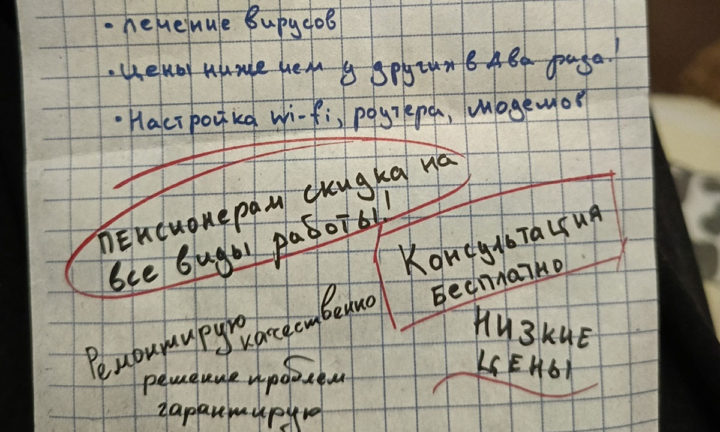 • лечение вирусов
• Цены ниже чем у других в два раза!
• Настройка wi-fi, роутера, модемов
Пенсионерам скидка на
все виды работы!!
Консультация
Бесплатно
Ремонтирую
качественно
решение проблем
гарантирую
НИЗКИЕ
ЦЕНЫ